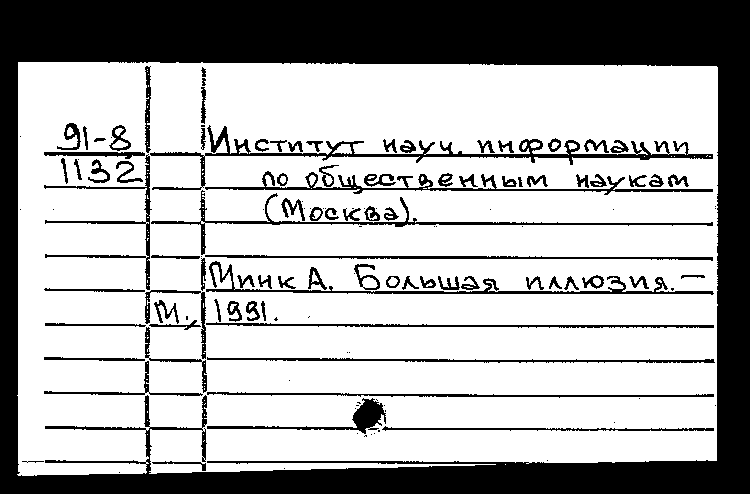 91-8 Институт науч. информации
1132 по общественным наукам
(Москва).
Минк А. Большая иллюзия. —
М., 1991.